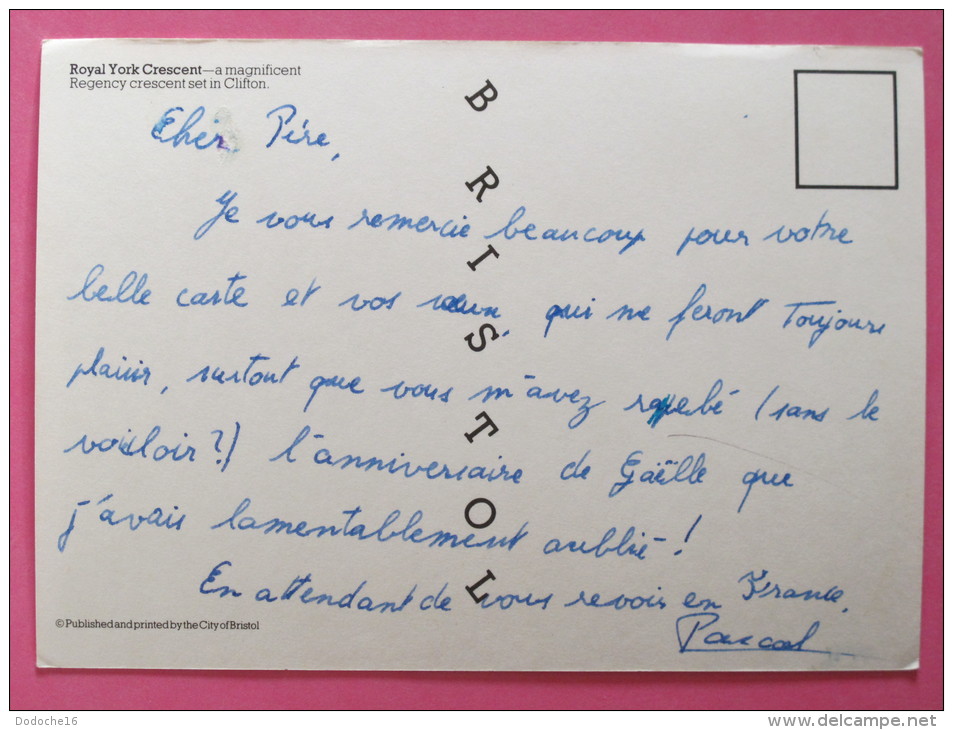 Royal York Crescent—a magnificent
Regency crescent set in Clifton.
BRISTOL
Cher Père,
Je vous remercie beaucoup pour votre
belle carte et vos vœux, qui me feront Toujours
plaisir, surtout que vous m'avez (sans le
vouloir?) l'anniversaire de Gaëlle que
j'avais lamentablement oublié!
En attendant de vous revoir en France,
Pascal
© Published and printed by the City of Bristol
Dodoche16
delcampe.net